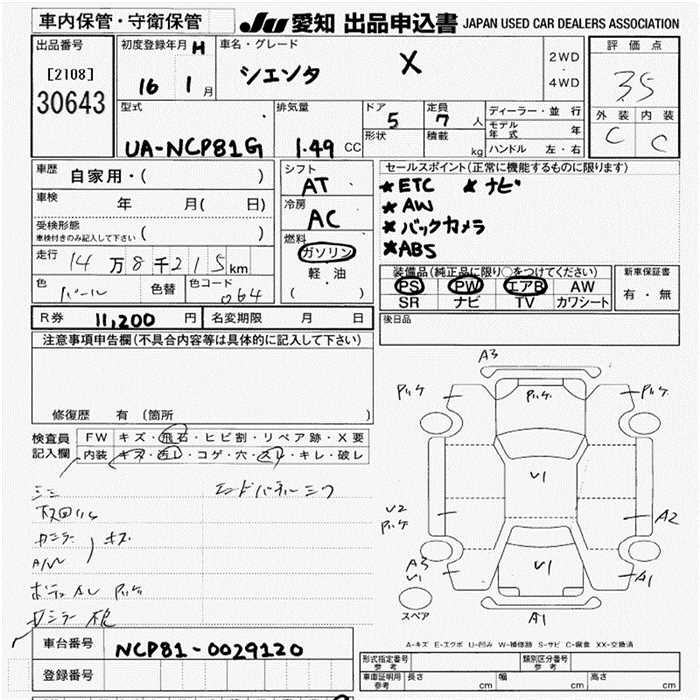 車内保管・守衛保管
JU 愛知 出品申込書 JAPAN USED CAR DEALERS ASSOCIATION
出品番号
[2108]
30643
初度登録年月 H
16 1 月
車名・グレード
シエンタ X
2WD
・
4WD
評価点
3.5
外装 内装
C C
型式
UA-NCP81G
排気量
1.49 CC
ドア
5
形状
定員
7 人
積載
kg
ディーラー・並行
モデル年式 年
ハンドル 左・右
車歴
自家用・( )
車検
年 月( 日)
受検形態
車検付きのみ記入して下さい ( )
走行 14万8千215km
色 パール 色替 色コード 064
シフト
AT
冷房
AC
燃料
ガソリン
軽・油
( )
セールスポイント(正常に機能するものに限ります)
★ETC ★ナビ
★AW
★バックカメラ
★ABS
装備品(純正品に限り○をつけてください)
PS PW エアB AW
SR ナビ TV カワシート
新車保証書
有・無
R券 11,200 円 名変期限 月 日
後日品
注意事項申告欄(不具合内容等は具体的に記入して下さい)
修復歴 有(箇所 )
検査員
記入欄
FW キズ・飛石・ヒビ割・リペア跡・X要
内装 キズ・汚レ・コゲ・穴・スレ・キレ・破レ
キズ
A/W
A3
V1
V1
A2
A3
V1
A1
A1
スペア
A-キズ E-エクボ U-凹み W-補修跡 S-サビ C-腐食 XX-交換済
車台番号 NCP81-0029120
登録番号
形式指定番号
参考
類別区分番号
参考
車庫証明用
参考
長さ cm 幅 cm 高さ cm